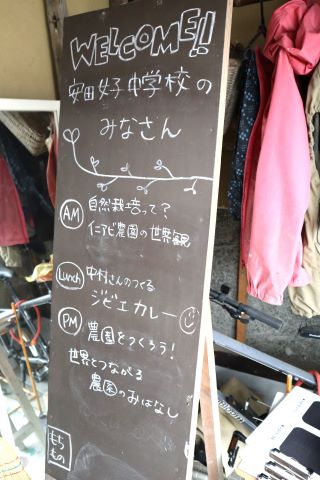 WELCOME!!
安田女子中学校の
みなさん
AM 自然栽培って？
仁アビ農園の世界観
Lunch 中村さんのつくる
ジビエカレー
PM 農園をつくろう！
世界とつながる
農園のみはなし
もち
もの